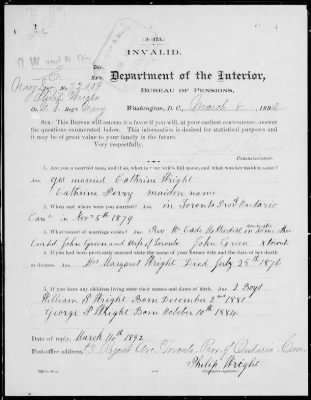 (3-173.)
INVALID.
O. W. and N. Div.
No. 22009
Philip Wright
Navy
Department of the Interior,
BUREAU OF PENSIONS,
Washington, D. C., March 8, 1892
SIR: This Bureau will esteem it a favor if you will, at your earliest convenience, answer
the questions enumerated below. This information is desired for statistical purposes and
it may be of great value to your family in the future.
Very respectfully,
Commissioner.
1. Are you a married man, and if so, what is your wife's full name, and what was her maiden name?
Ans. Yes married Cathrine Wright
Cathrine Perry maiden name
2. When and where were you married? Ans. in Toronto Prov Ontario
Can in Nov 5th 1879
3. What record of marriage exists? Ans. Rev W Cade Methodist
John Green and Wife of Toronto
4. If you had been previously married state the name of your former wife and the date of her death
or divorce. Ans. Mrs Margaret Wright Died July 25th 1876
5. If you have any children living state their names and dates of birth. Ans. 2 Boys
William P Wright Born December 2nd 1881
George S Wright Born October 10th 1884
Date of reply, March 10th 1892
Post-office address, Toronto Prov of Ontario Can
Philip Wright